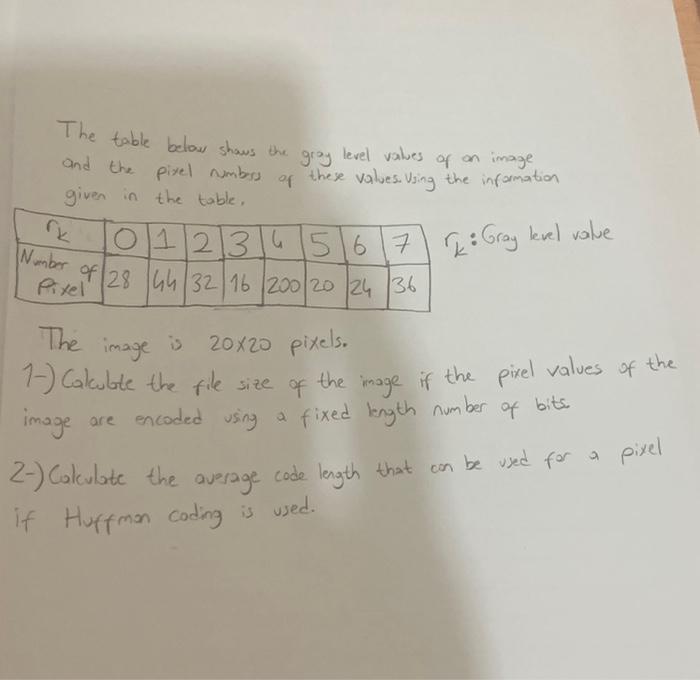 The table below shows the gray level values of an image
and the pixel numbers of these values. Using the information
given in the table,
rk 0 1 2 3 4 5 6 7 rk: Gray level value
Number of Pixel 28 44 32 16 200 20 24 36
The image is 20x20 pixels.
1-) Calculate the file size of the image if the pixel values of the
image are encoded using a fixed length number of bits.
2-) Calculate the average code length that can be used for a pixel
if Huffman coding is used.